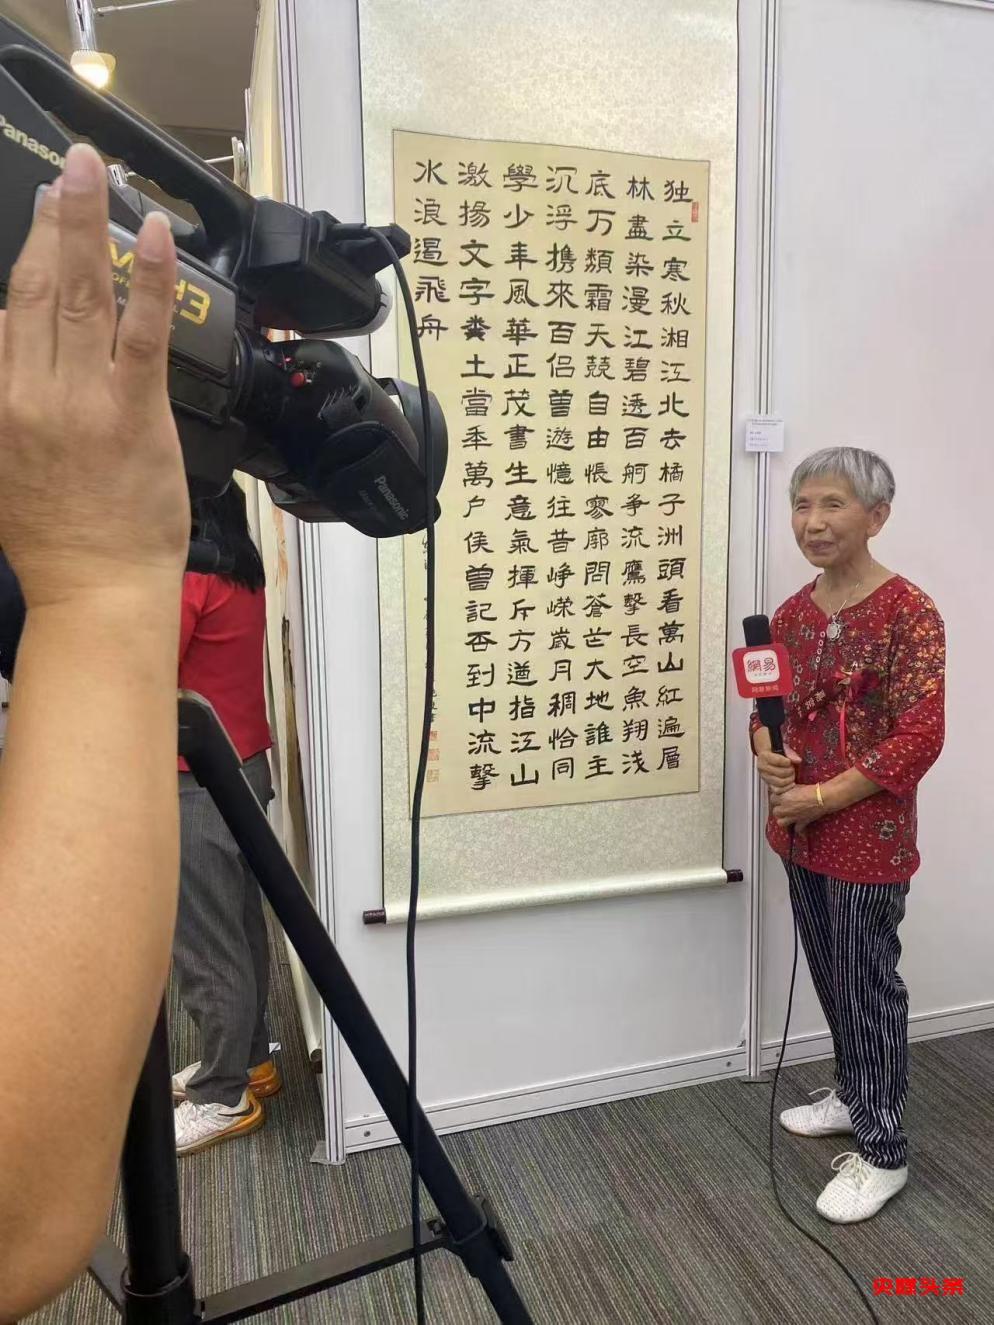 独立寒秋湘江北去橘子洲頭看萬山紅遍層
林盡染漫江碧透百舸争流鷹擊長空魚翔浅
底万類霜天競自由悵寥廓問蒼芒大地誰主
沉浮携來百侣曽遊憶往昔崢嶸歲月稠恰同
學少年風華正茂書生意氣揮斥方遒指江山
激揚文字糞土當年萬户侯曽記否到中流擊
水浪遏飛舟
Panasonic
H3
Panasonic
網易
央媒头条